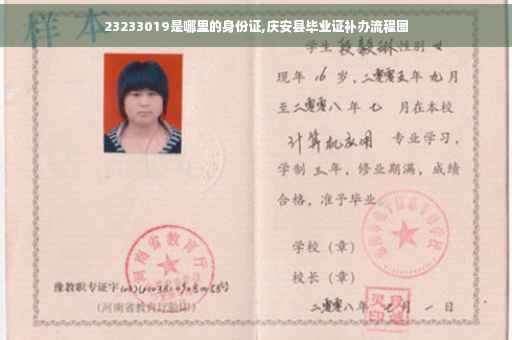 样本
23233019是哪里的身份证,庆安县毕业证补办流程图
学生 段毅琳 性别 女
现年 16 岁，二零零五年 九月
至二零零八年 七 月在本校
计算机应用 专业学习，
学制 三年，修业期满，成绩
合格，准予毕业
学校（章）
校长（章）
河南省教育厅
豫教职专证字
(河南省教育厅验印)
二零零八年 月 一 日